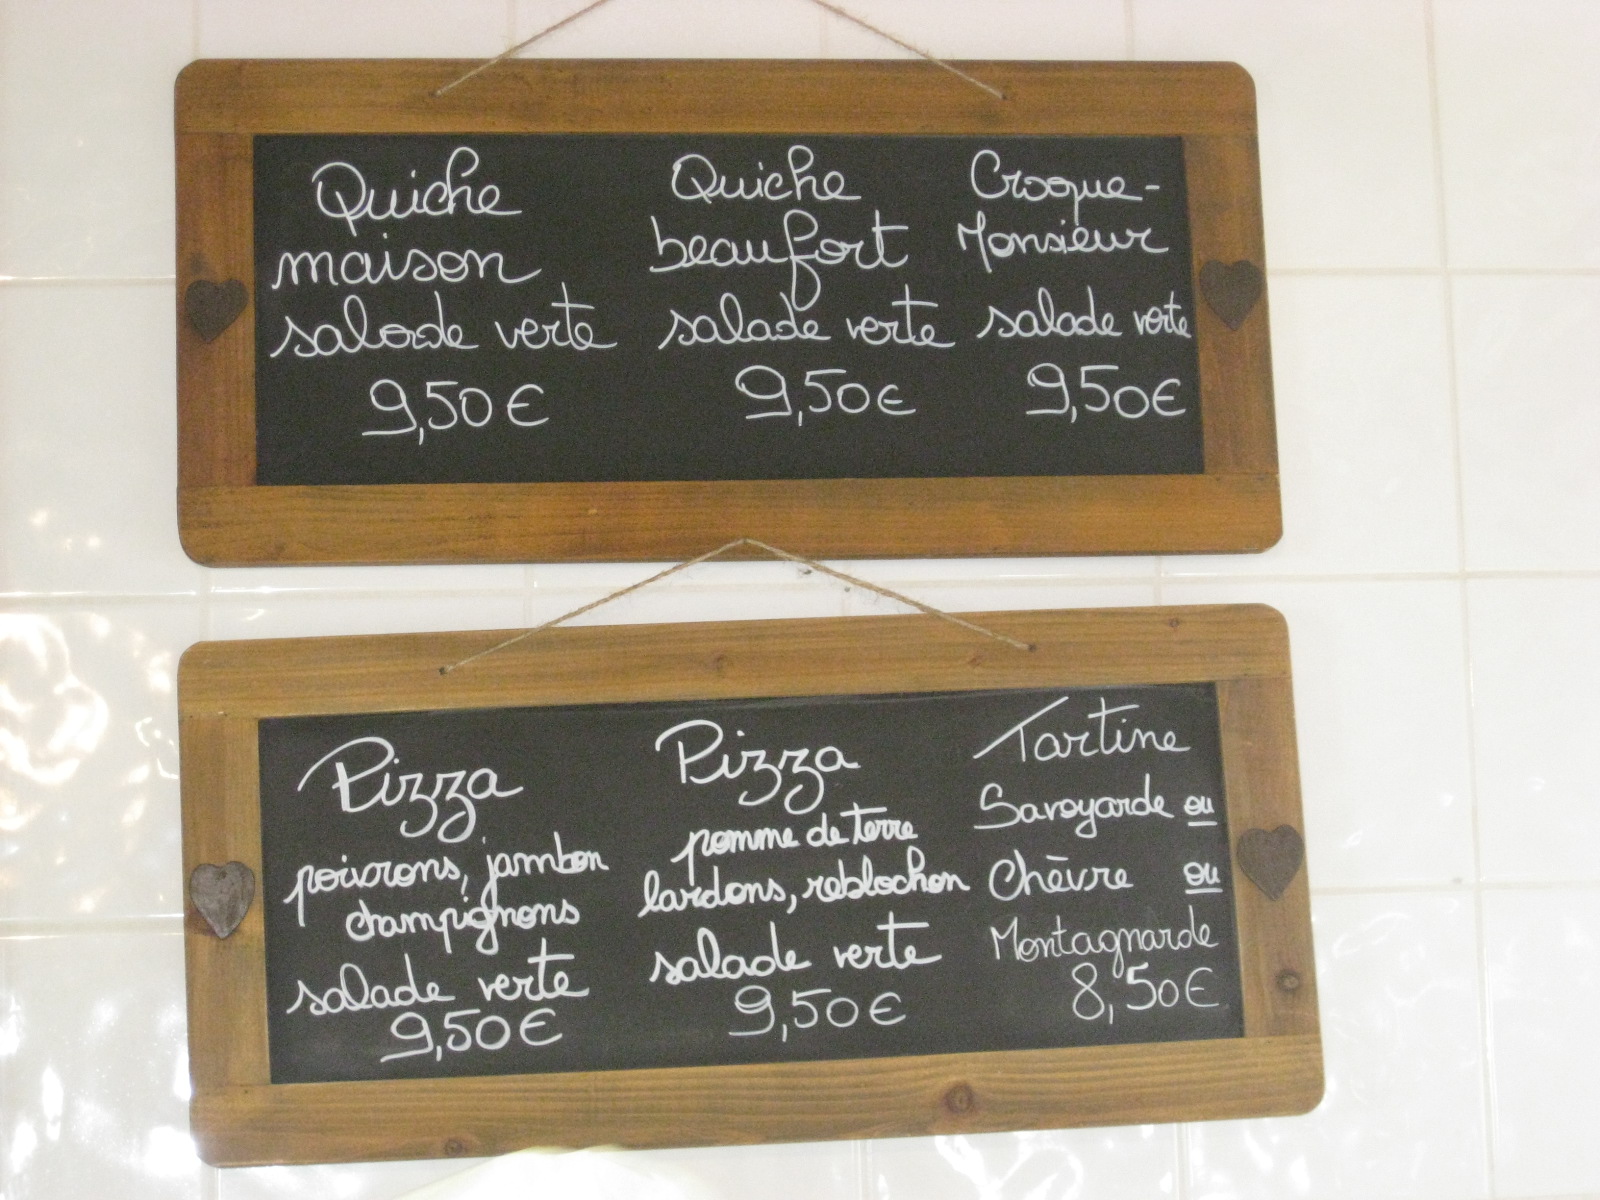 Quiche
maison
salade verte
9,50€
Quiche
beaufort
salade verte
9,50€
Croque-
Monsieur
salade verte
9,50€
Pizza
poivrons, jambon
champignons
salade verte
9,50€
Pizza
pomme de terre
lardons, reblochon
salade verte
9,50€
Tartine
Savoyarde ou
Chèvre ou
Montagnarde
8,50€